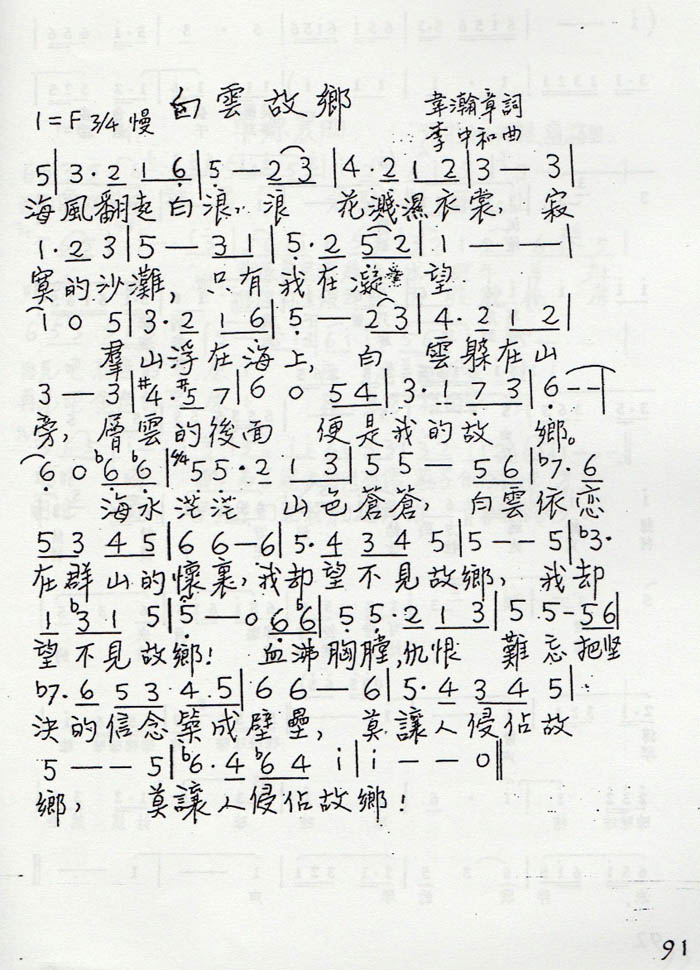 白雲故鄉
1=F 3/4 慢
韋瀚章詞
李中和曲
5|3·2 1 6|5 — 2 3|4·2 1 2|3 — 3|
海風翻起白浪，浪 花濺濕衣裳， 寂
1·2 3|5 — 3 1|5·2 5 2|1 — — —|
寞的沙灘， 只有我在凝 望
1 0 5|3·2 1 6|5 — 2 3|4·2 2|
羣山浮在海上 白 雲躲在山
3 — 3|#4·#5 7|6 0 5 4|3·1 7 3|6 — —|
旁，層雲的後面 便是我的故 鄉。
6 0 b6 b6|5 5·2 1 3|5 5 — 5 6|b7·6
海水茫茫 山色蒼蒼， 白雲依恋
5 3 4 5|6 6 — 6|5·4 3 4 5|5 — — 5|b3·
在群山的懷裏，我却望不見故鄉， 我却
1 b3 1 5|5 — 0 6 b6|5 5·2 1 3|5 5 - 5 6|
望不見故鄉！ 血沸胸膛，仇恨 難忘把坚
b7·6 5 3 4·5|6 6 — 6|5·4 3 4 5|
決的信念築成壁壘， 莫讓人侵佔故
5 — — 5|b6·4 b6 4 i|i — — 0‖
鄉， 莫讓人侵佔故鄉！
91